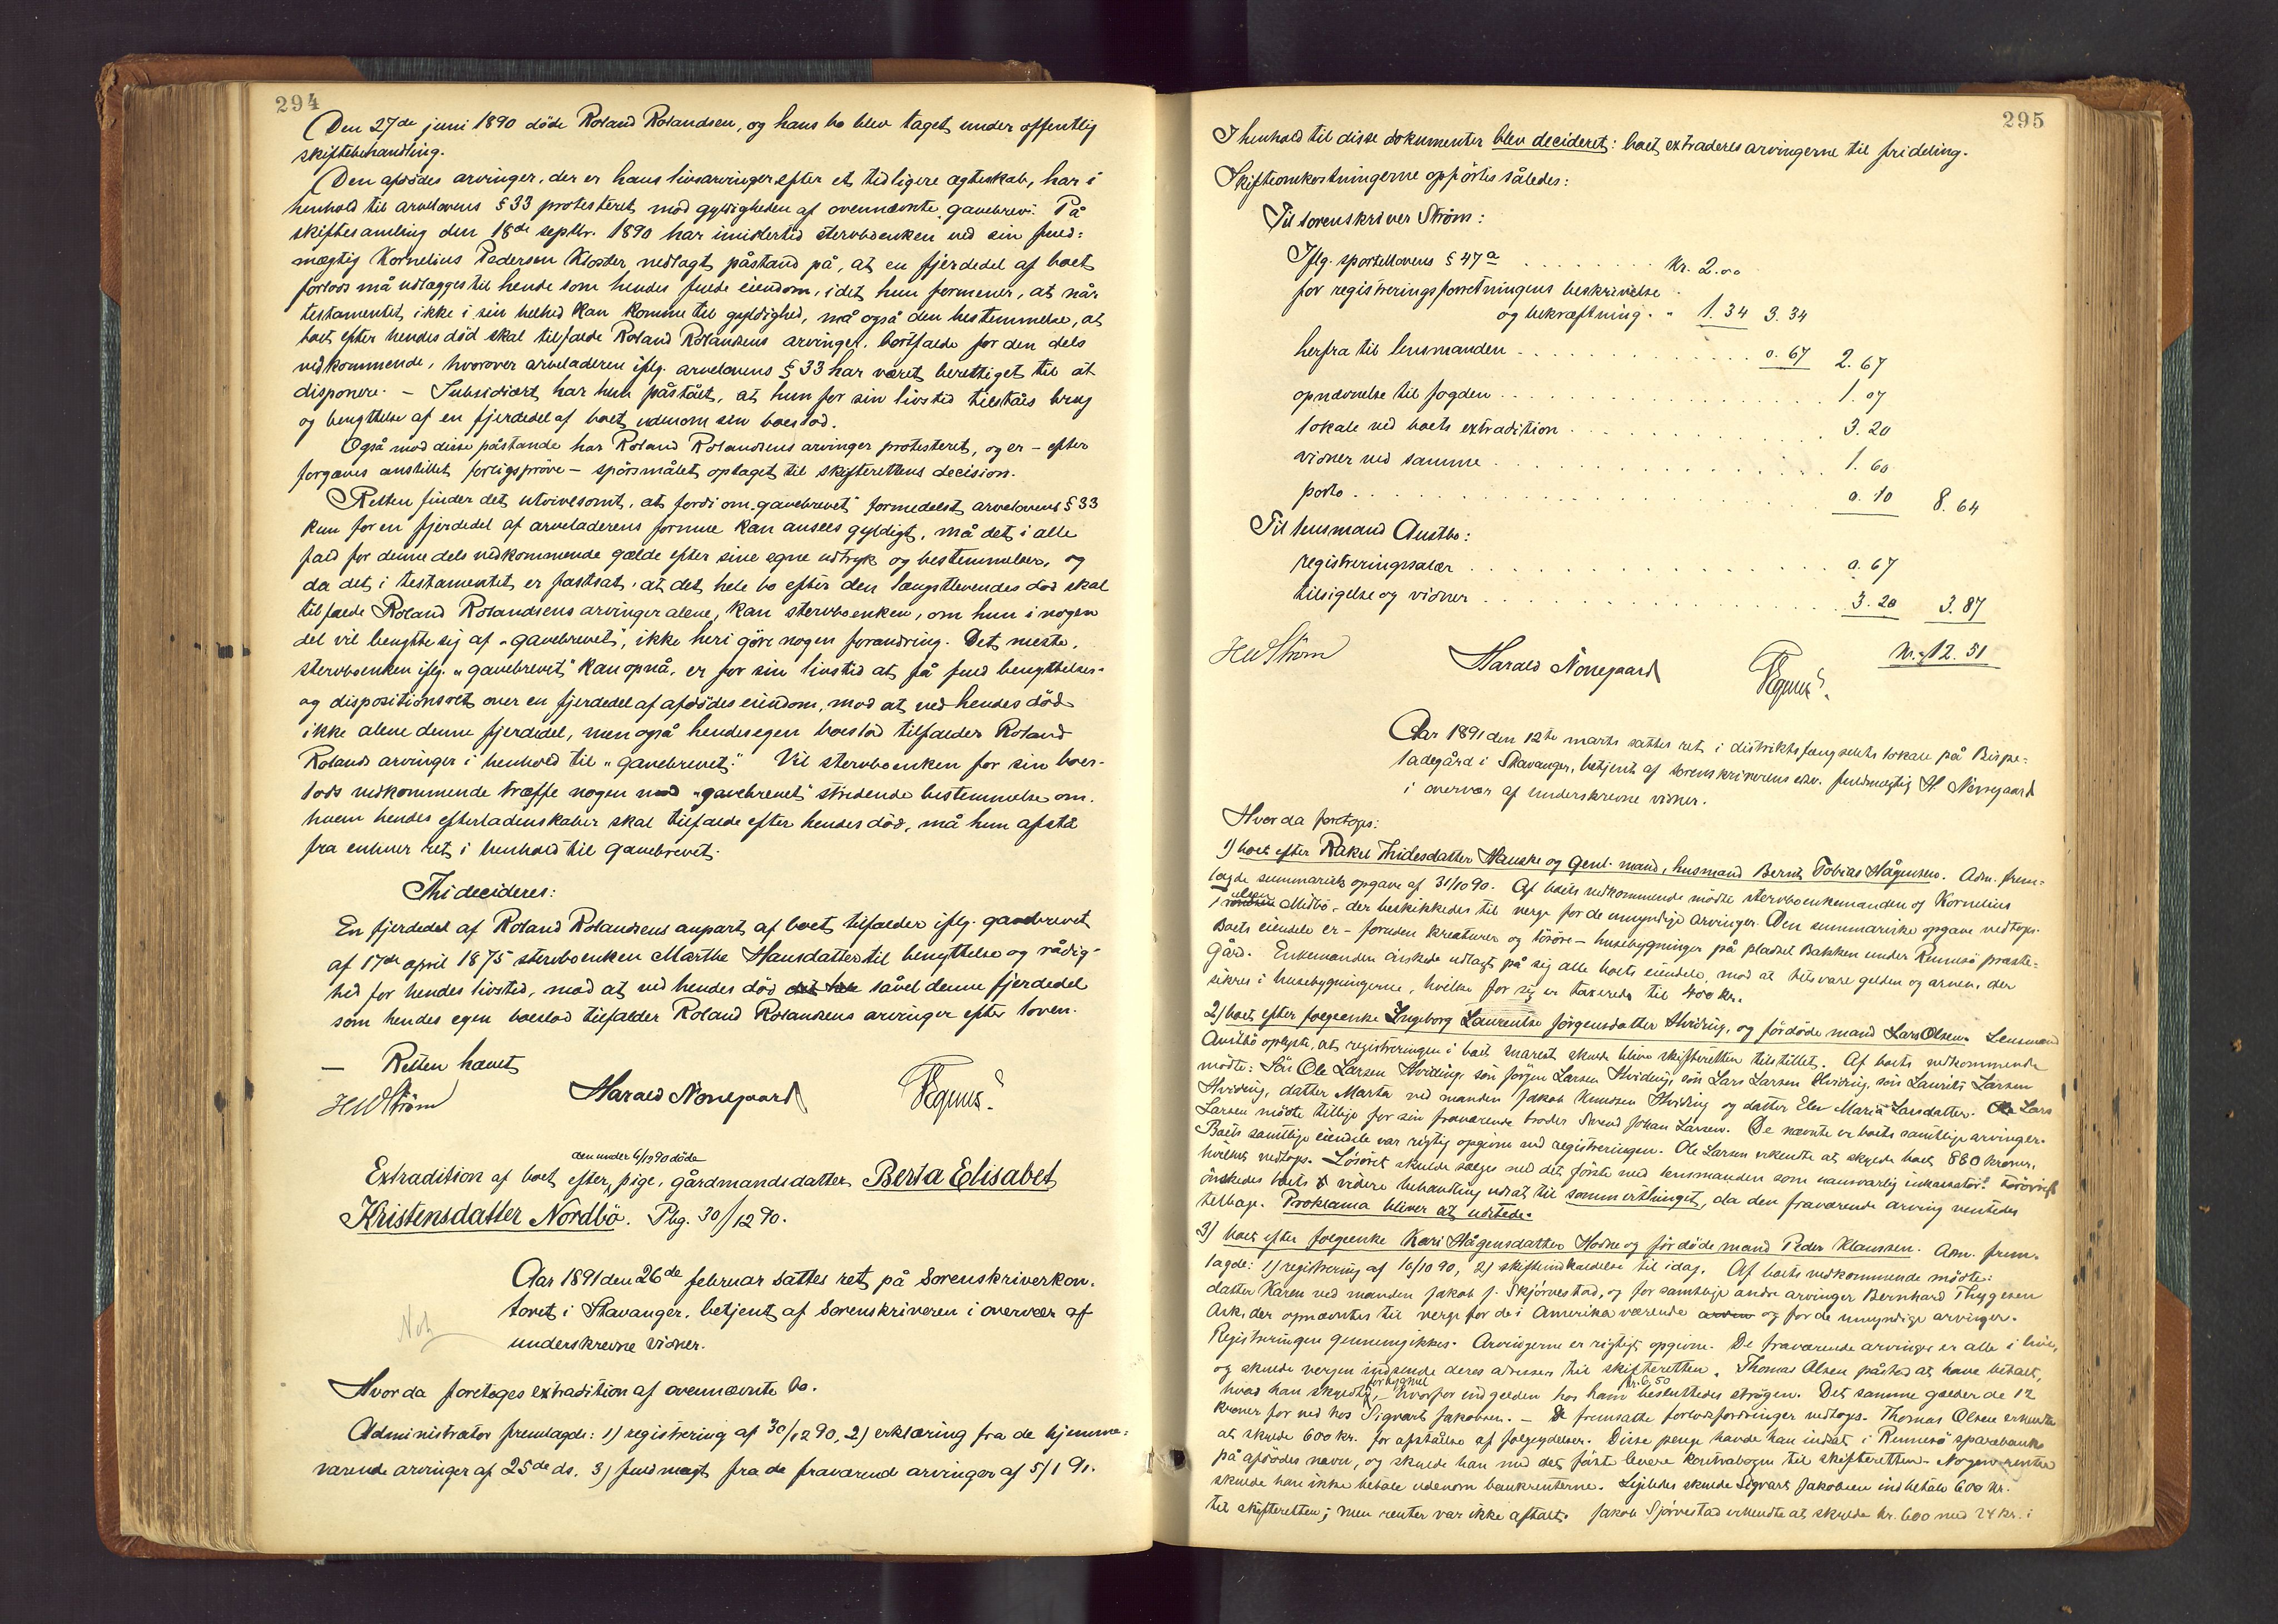 294
Den 27de juni 1890 döde Roland Rolandsen, og hans bo blev taget under offentlig
skiftebehandling.
Den afdödes arvinger, der er hans livsarvinger efter et tidligere ægteskab, har i
henhold til arvelovens § 33 protesteret mod gyldigheden af ovennævnte gavebrev. På
skiftesamling den 18de septbr. 1890 har imidlertid stervboenken ved sin fuld=
mægtig Kornelius Pedersen Kloster nedlagt påstand på, at en fjerdedel af boet
forlods må udlægges til hende som hendes fulde eiendom, idet hun formener, at når
testamentet ikke i sin helhed kan komme til gyldighed, må også den bestemmelse, at
boet efter hendes död skal tilfalde Roland Rolandsens arvinger, bortfalde for den dels
vedkommende, hvorover arveladeren iflg. arvelovens § 33 har været berettiget til at
disponere. – Subsidiært har hun påstået, at hun for sin livstid tilståes brug
og benyttelse af en fjerdedel af boet udenom sin boeslod.
Også mod disse påstande har Roland Rolandsens arvinger protesteret, og er – efter
forgjæves anstillet forligspröve – spörsmålet optaget til skifterettens decision.
Retten finder det utvivlsomt, at fordi om "gavebrevet" formedelst arvelovens § 33
kun for en fjerdedel af arveladerens formue kan ansees gyldigt, må det i alle
fald for denne dels vedkommende gælde efter sine egne udtryk og bestemmelser, og
da det i testamentet er fastsat, at det hele bo efter den længstlevendes död skal
tilfalde Roland Rolandsens arvinger alene, kan stervboenken, om hun i nogen
del vil benytte sig af "gavebrevet", ikke heri göre nogen forandring. Det meste,
stervboenken iflg. "gavebrevet" kan opnå, er for sin livstid at få fuld benyttelses-
og dispositionsret over en fjerdedel af afdödes eiendom, mod at ved hendes död
ikke alene denne fjerdedel, men også hendes egen boeslod tilfalder Roland
Rolands arvinger i henhold til "gavebrevet". Vil stervboenken for sin boes-
lods vedkommende træffe nogen mod "gavebrevet" stridende bestemmelse om,
hvem hendes efterladenskaber skal tilfalde efter hendes död, må hun afstå
fra enhver ret i henhold til gavebrevet.
Thi decideres:
En fjerdedel af Roland Rolandsens anpart af boet tilfalder iflg. gavebrevet
af 17de april 1875 stervboenken Marthe Hansdatter til benyttelse og rådig-
hed for hendes livstid, mod at ved hendes död såvel denne fjerdedel
som hendes egen boeslod tilfalder Roland Rolandsens arvinger efter loven.
– Retten hævet
HWStröm Harald Norregaard Tegnes.
den under 6/12 90 döde
Extradition af boet efter pige, gårdmandsdatter Berta Elisabet
Kristensdatter Nordbö. Pbg. 30/12 90.
Aar 1891 den 26de februar sattes ret på Sorenskriverkon-
toret i Stavanger, betjent af Sorenskriveren i overvær af
underskrevne vidner.
Not
Hvor da foretoges extradition af ovennævnte bo.
Administrator fremlagde: 1) registrering af 30/12 90, 2) erklæring fra de hjemme=
værende arvinger af 25de ds. 3) fuldmagt fra de fraværende arvinger af 5/1 91.
295
I henhold til disse dokumenter blev decideret: boet extraderes arvingerne til frideling.
Skifteomkostningerne opförtes således:
Til sorenskriver Ström:
Iflg. sportellovens § 47a . . . . . kr. 2.00
for registreringsforretningens beskrivelse
og bekræftning . " 1.34 3.34
herfra til lensmanden . . . . . 0.67 2.67
opnævnelse til fogden . . . . . 1.07
lokale ved boets extradition . . . . . 3.20
vidner ved samme . . . . . 1.60
porto . . . . . 0.10 8.64
Til lensmand Austbö:
registreringssalær . . . . . 0.67
tilsigelse og vidner . . . . . 3.20 3.87
kr. 12.51
HWStröm Harald Norregaard Tegnes.
Aar 1891 den 12te marts sattes ret i distriktsfængselets lokale på Bispe=
ladegård i Stavanger, betjent af sorenskriverens edsv. fuldmægtig H Norregaard
i overvær af underskrevne vidner.
Hvor da foretoges:
1) boet efter Rakel Thidesdatter Hauske og genl. mand, husmand Bernt Tobias Hågensen. Adm. frem=
lagde summarisk opgave af 31/10 90. Af boets vedkommende mödte stervboenkemanden og Kornelius
Midbö, der beskikkedes til verge for de umyndige arvinger. Den summariske opgave vedtoges.
Boets eiendele er – foruden kreaturer og lösöre – husebygninger på pladset Bakken under Rennesö præste=
gård. Enkemanden önskede udlagt på sig alle boets eiendele, mod at tilsvare gelden og arven, der
sikres i husebygningerne, hvilke for sig er taxerede til 400 kr.
2) boet efter folgeenke Ingeborg Laurentse Jörgensdatter Hviding, og för döde mand Lars Olsen. Lensmand
Austbö oplyste, at registreringen i boet snarest skulde blive skifteretten tilstillet. Af boets vedkommende
mödte: Sön Ole Larsen Hviding, sön Jörgen Larsen Hviding, sön Lars Larsen Hviding, sön Laurits Larsen
Hviding, datter Marta ved manden Jakob Knudsen Hviding og datter Else Maria Larsdatter. Lars
Larsen mödte tillige for sin fraværende broder Svend Johan Larsen. De nævnte er boets samtlige arvinger.
Boets samtlige eiendele var rigtig opgivne ved registreringen. Ole Larsen erkendte at skylde boet 880 kroner,
hvilket vedtoges. Lösöret skulde sælges ved det förste ved lensmanden som uansvarlig inkassator.
önskedes boets videre behandling udsat til sommerthinget, da den fraværende arving ventedes
tilbage. Proklama bliver at udstede.
3) boet efter folgeenke Kari Hågensdatter Hodne og för döde mand Peder Klaussen. Adm. frem-
lagde: 1) registrering af 16/10 90, 2) skifteindkaldelse til idag. Af boets vedkommende mödte:
datter Karen ved manden Jakob J. Skjörvestad, og for samtlige andre arvinger Bernhard Thygesen
Ask, der opnævntes til verge for de i Amerika værende og for de umyndige arvinger.
Registreringen gennemgikkes. Arvingerne er rigtigt opgivne. De fraværende arvinger er alle i live,
og skulde vergen indsende deres adresser til skifteretten. Thomas Olsen påstod at have betalt,
for bygmel kr. 6,50
hvad han skyldte, – hvorfor indgelden hos ham besluttedes strögen. Det samme gælder de 12
kroner for ved hos Sigvart Jakobsen. – De fremsatte forlodsfordringer vedtoges. Thomas Olsen erkendte
at skylde 600 kr. for afståelse af folgeydelser. Disse penge havde han indsat i Rennesö sparebank
på afdödes navn, og skulde han med det förste levere kontrabogen til skifteretten. Nogen rente
skulde han ikke betale udenom bankrenterne. Ligeledes skulde Sigvart Jakobsen indbetale 600 kr.
til skifteretten; men renter var ikke aftalt. Jakob Sjörvestad erkendte at skylde kr. 600 med 24 kr. i